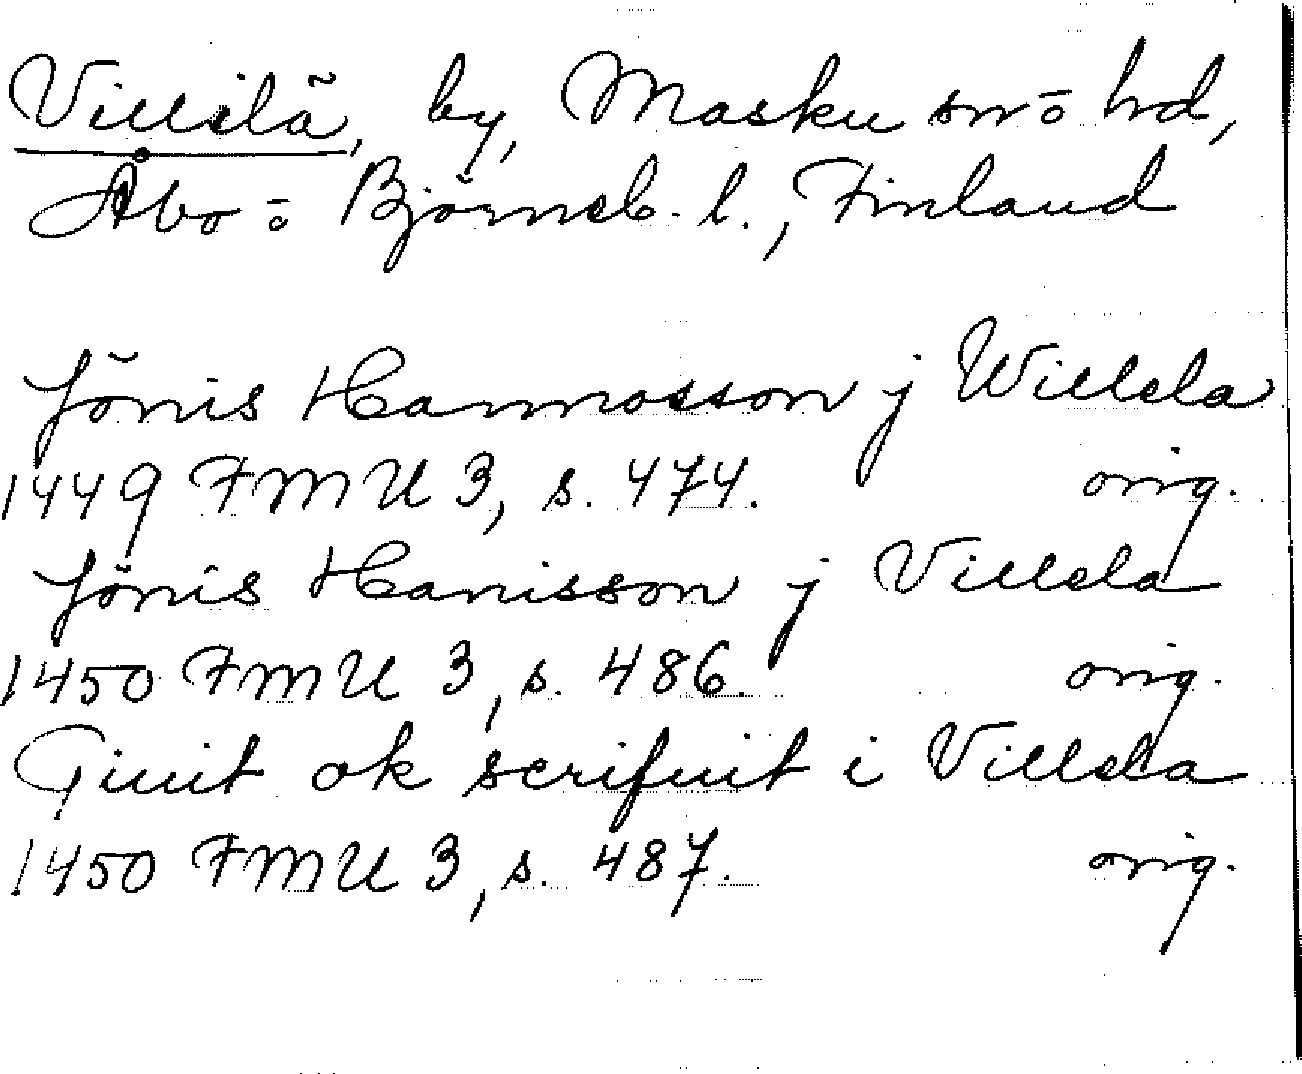 Villilä, by, Masku sn ō hd,
Åbo ō Björneb. l., Finland
Jönis Hannosson j Willela
1449 FMU 3, s. 474. orig.
Jönis Hanisson j Villela
1450 FMU 3, s. 486. orig.
Giuit ok scrifuit i Villela
1450 FMU 3, s. 487. orig.